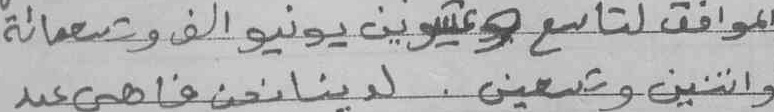 الموافق لتاسع وعشرين يونيو الف وتسعمائة
واثنين وتسعين. لدينا نحن